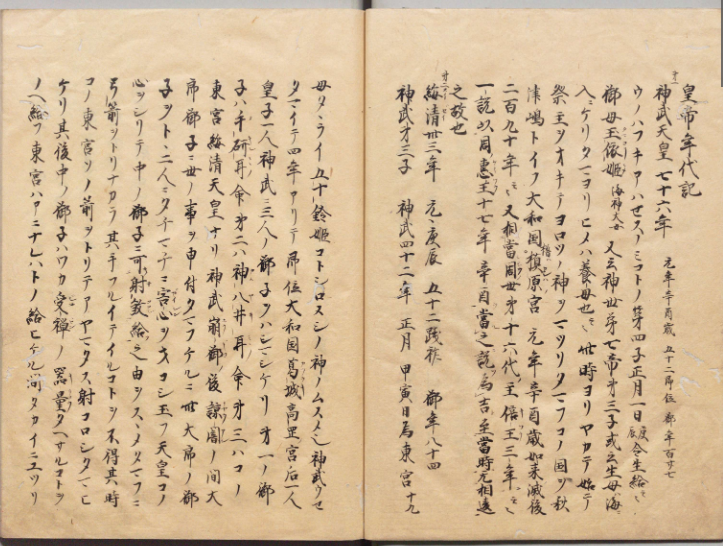 皇帝年代記
神武天皇 七十六年 元年辛酉歳 五十二即位 御年百廿七
ウノハフキアハセスノミコトノ第四子正月一日庚辰令生給云々
御母玉依姫 海神大女 又云神世第七帝第三子或云生母海ニ
入ニケリタマヨリヒメハ養母也云々 此時ヨリヤカテ始テ
祭主ヲオキテヨロツノ神ヲマツリタマフコノ国ヲ秋
津嶋トイフ大和国橿原宮 元年辛酉歳如来滅後
二百九十年云々 又相當周世第十六代主僖王三年云々
一説以周恵王十七年辛酉當之説為吉至當時尤相違
之故也
綏靖 卅三年 元年庚辰 五十二践祚 御年八十四
神武第三子 神武四十二年 正月 甲寅日為東宮 十九
母タヽライ五十鈴姫コトシロヌシノ神ノムスメ也神武ウセ
タマイテ四年アリテ即位大和国葛城高丘宮后一人
皇子一人神武ニ三人ノ御子ヲハシマシケリ第一ノ御
子ハ手研耳命第二ハ神八井耳命第三ハコノ
東宮綏靖天皇ナリ神武崩御後諒闇ノ間大
席御子ニ世ノ事ヲ申付タマフケルニ此大席ノ御
子ヲトヽ二人ニタチマチニ害心ヲオコシ玉フ天皇コノ
心ヲシリテ中ノ御子ニ可射敦給之由ヲスヽメタマフニ
弓箭ヲトリナカラ其手フルイテイルコトヲ不得其時
コノ東宮ソノ箭ヲトリテアヤマタス射コロシタマヒ
ケリ其後中ノ御子ハワカ受禅ノ器量タヘサルコトヲ
ノヘ給フ東宮ハアニナレハトノ給ヒケル間タカイニユツリ